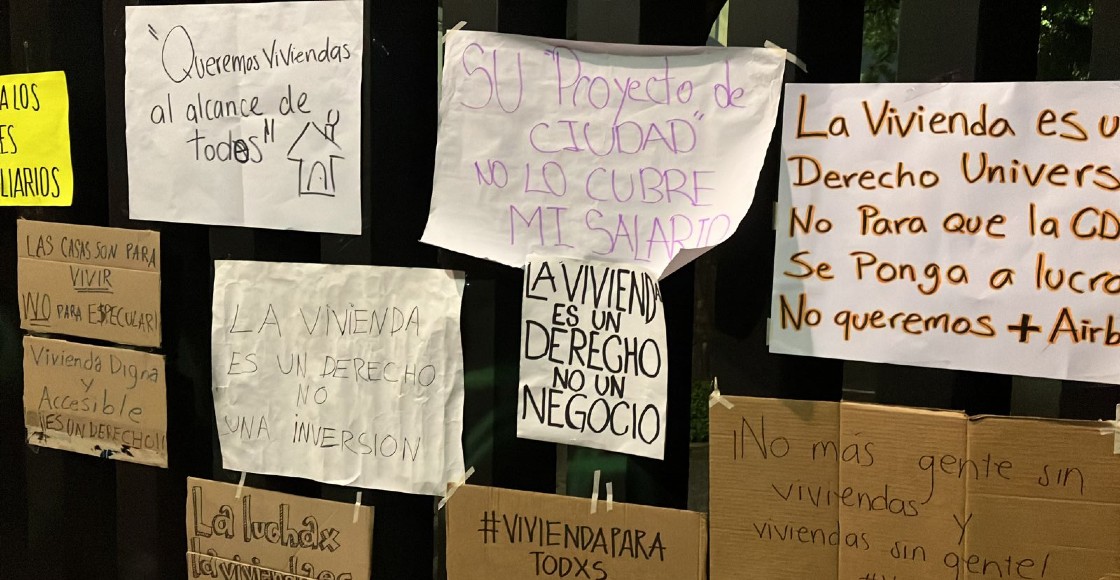 A LOS
ES
LIARIOS
"Queremos Viviendas
al alcance de
todes"
SU "Proyecto de
CIUDAD"
NO LO CUBRE
MI SALARIO
La Vivienda es u
Derecho Univers
No Para que la CD
Se Ponga a lucra
No queremos + Airb
LAS CASAS SON PARA
VIVIR
NO PARA ESPECULAR!
Vivienda Digna
y
Accesible
¡ES UN DERECHO!!
LA VIVIENDA
ES UN DERECHO
NO
UNA INVERSION
LA VIVIENDA
ES UN
DERECHO
NO UN
NEGOCIO
La lucha x
la vivienda es
#VIVIENDAPARA
TODXS
¡No más gente sin
viviendas
y
viviendas sin gente!